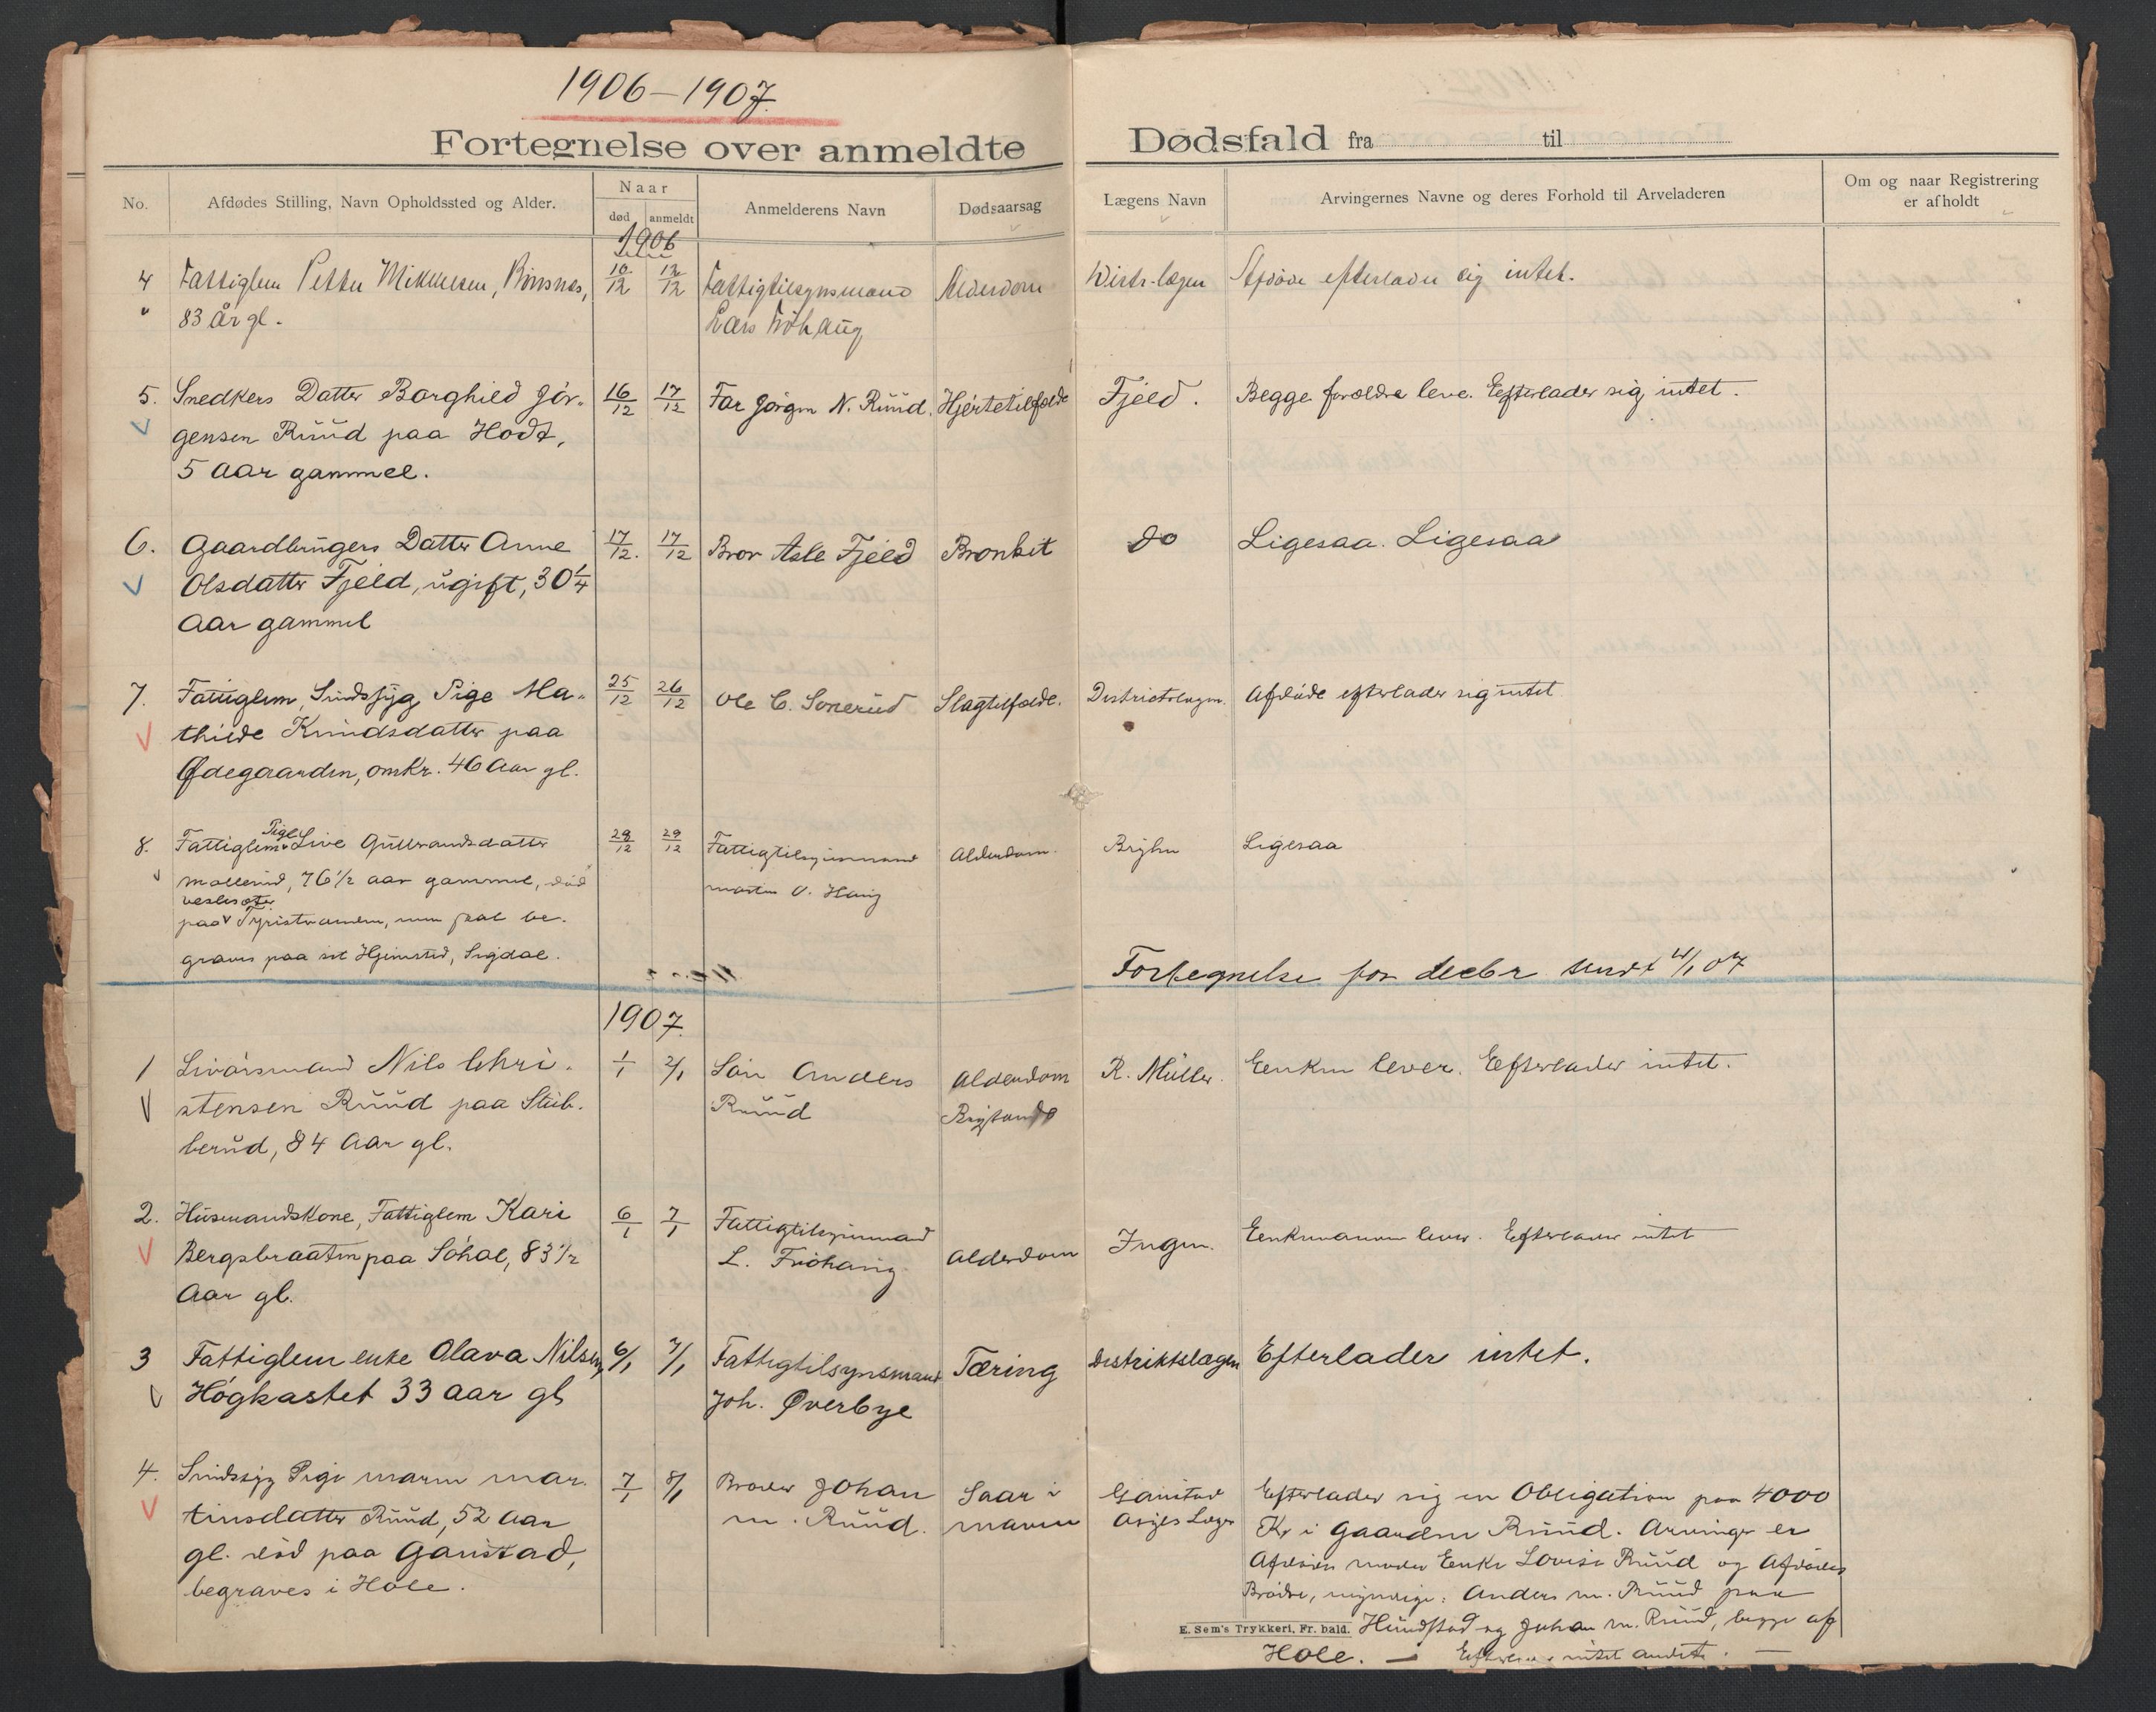 1906–1907.
Fortegnelse over anmeldte Dødsfald fra til
No. Afdødes Stilling, Navn Opholdssted og Alder. Naar død anmeldt Anmelderens Navn Dødsaarsag Lægens Navn Arvingernes Navne og deres Forhold til Arveladeren Om og naar Registrering er afholdt
1906
4 Fattiglem Petter Mikkelsen, 10/12 12/12 Fattigtilsynsmand Alderdom Distr.lægen Afdøde efterlader sig intet.
83 År gl. Lars Frøhaug
5. Snedkers Datter Borghild Jör- 16/12 17/12 Far Jörgen N. Ruud. Hjertetilfælde Fjeld. Begge forældre leve. Efterlader sig intet.
gensen Ruud paa Hodt,
5 Aar gammel.
6. Gaardbrugers Datter Anne 17/12. 17/12 Bror Asle Fjeld Bronkit do Ligesaa. Ligesaa
Olsdatter Fjeld, ugift, 30 1/4
Aar gammel
7. Fattiglem, Sindssyg Pige Ma- 25/12 26/12 Ole C. Sonerud Slagtilfælde. Districtslægen. Afdöde efterlader sig intet
thilde Knudsdatter paa
Ødegaarden, omkr. 46 Aar gl.
8. Fattiglem Pige Live Gulbrandsdatter 29/12 29/12 Fattigtilsynsmand Alderdom. Bryhn Ligesaa
Mollerud, 76 1/2 aar gammel, död Martin O. Haug
paa Veslesæter Tyristranden, men skal be-
graves paa sit Hjemsted, Sigdal.
Fortegnelse for decbr sendt 4/1 07
1907.
1 Livörsmand Nils Chri- 1/1 2/1 Sön Anders Alderdom R. Müller. Eenken lever. Efterlader intet.
stensen Ruud paa Stub- Ruud
berud, 84 Aar gl.
2. Husmandskone, Fattiglem Kari 6/1 7/1 Fattigtilsynsmand Alderdom Ingen. Eenkemanden lever. Efterlader intet
Bergsbraaten paa Söhol, 83 1/2 L. Fröhaug
Aar gl.
3 Fattiglem enke Olava Nilsen, 6/1 7/1 Fattigtilsynsmand Tæring Distriktslægen Efterlader intet.
Høgkastet 33 aar gl Joh. Øverbye
4. Sindssyg Pige Maren Mar- 7/1 8/1 Broder Johan Saar i Efterlader sig en Obligation paa 4000
tinsdatter Ruud, 52 Aar M. Ruud. maven Asyls Læge Kr i Gaarden Ruud. Arvinger er
gl. död paa Gaustad, Gaustad Afdödes moder Enke Lovise Ruud og Afdödes
begraves i Hole. Brödre, myndige: Anders M. Ruud paa
E. Sem's Trykkeri, Fr.hald. Hundstad og Johan M. Ruud, begge af
Hole. — Efterlader intet andet. —